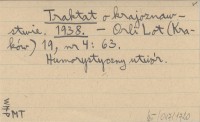 Traktat o krajoznaw-
stwie. 1938. - Orli Lot (Kra-
ków) 19, nr 4: 63.
Humorystyczny utwór.
MT